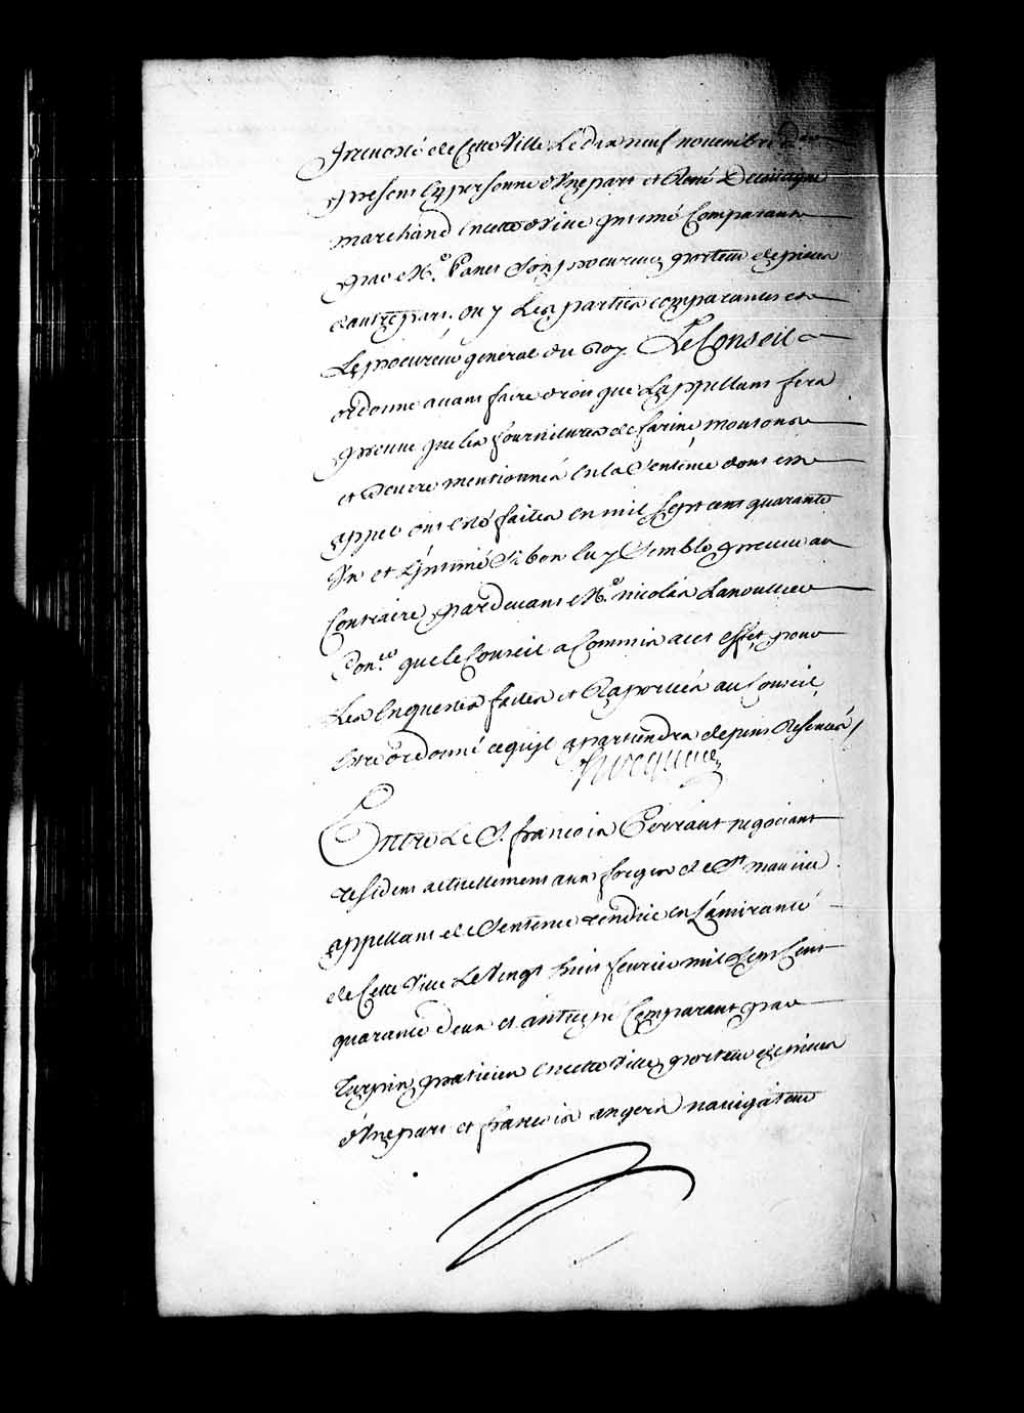 prevosté de Cette Ville Le dix neuf novembre der
present En personne d'Une part et René Decouagne
marchand En cette Ville Intimé Comparant
par Me. Panet Son procureur porteur de pieces
d'autre part. ouy Les parties comparantes et
Le procureur general du Roy. Le Conseil a
ordonné avant faire droit que L'appellant fera
preuve que les fournitures de farine moutons
et beurre mentionnés En la Sentence dont est
appel ont Esté faites en mil Sept cent quarante
Un et L'Intimé Si bon luy Semble preuve au
Contraire pardevant Me. nicolas Lanoullier
Conser. que le Conseil a Commis a cet effet pour
Les Enquestes faites et Raportées au Conseil,
Estre ordonné ce qu'il apartiendra depens Reservés /
hocquart
Entre Le S. francois Perrault negociant
residant actuellement aux forges de St. maurice
appellant de Sentence rendüe en L'amirauté
de Cette Ville Le Vingt huit fevrier mil Sept Cent
quarante deux et anticipé Comparant par
praticien En cette Ville porteur de pieces
d'Une part et francois angers navigateur